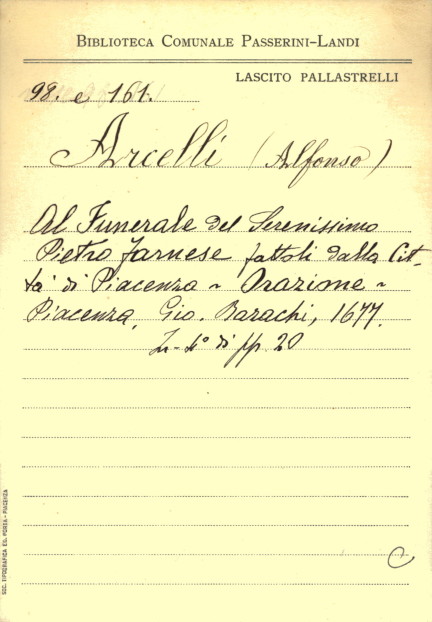 BIBLIOTECA COMUNALE PASSERINI-LANDI
LASCITO PALLASTRELLI
98. e 161.
Arcelli (Alfonso)
Al Funerale del Serenissimo
Pietro Farnese, fattoli dalla Cit-
tà di Piacenza - Orazione -
Piacenza, Gio. Bazachi, 1677.
In-4° di pp. 20
C
SOC. TIPOGRAFICA ED. PORTA - PIACENZA